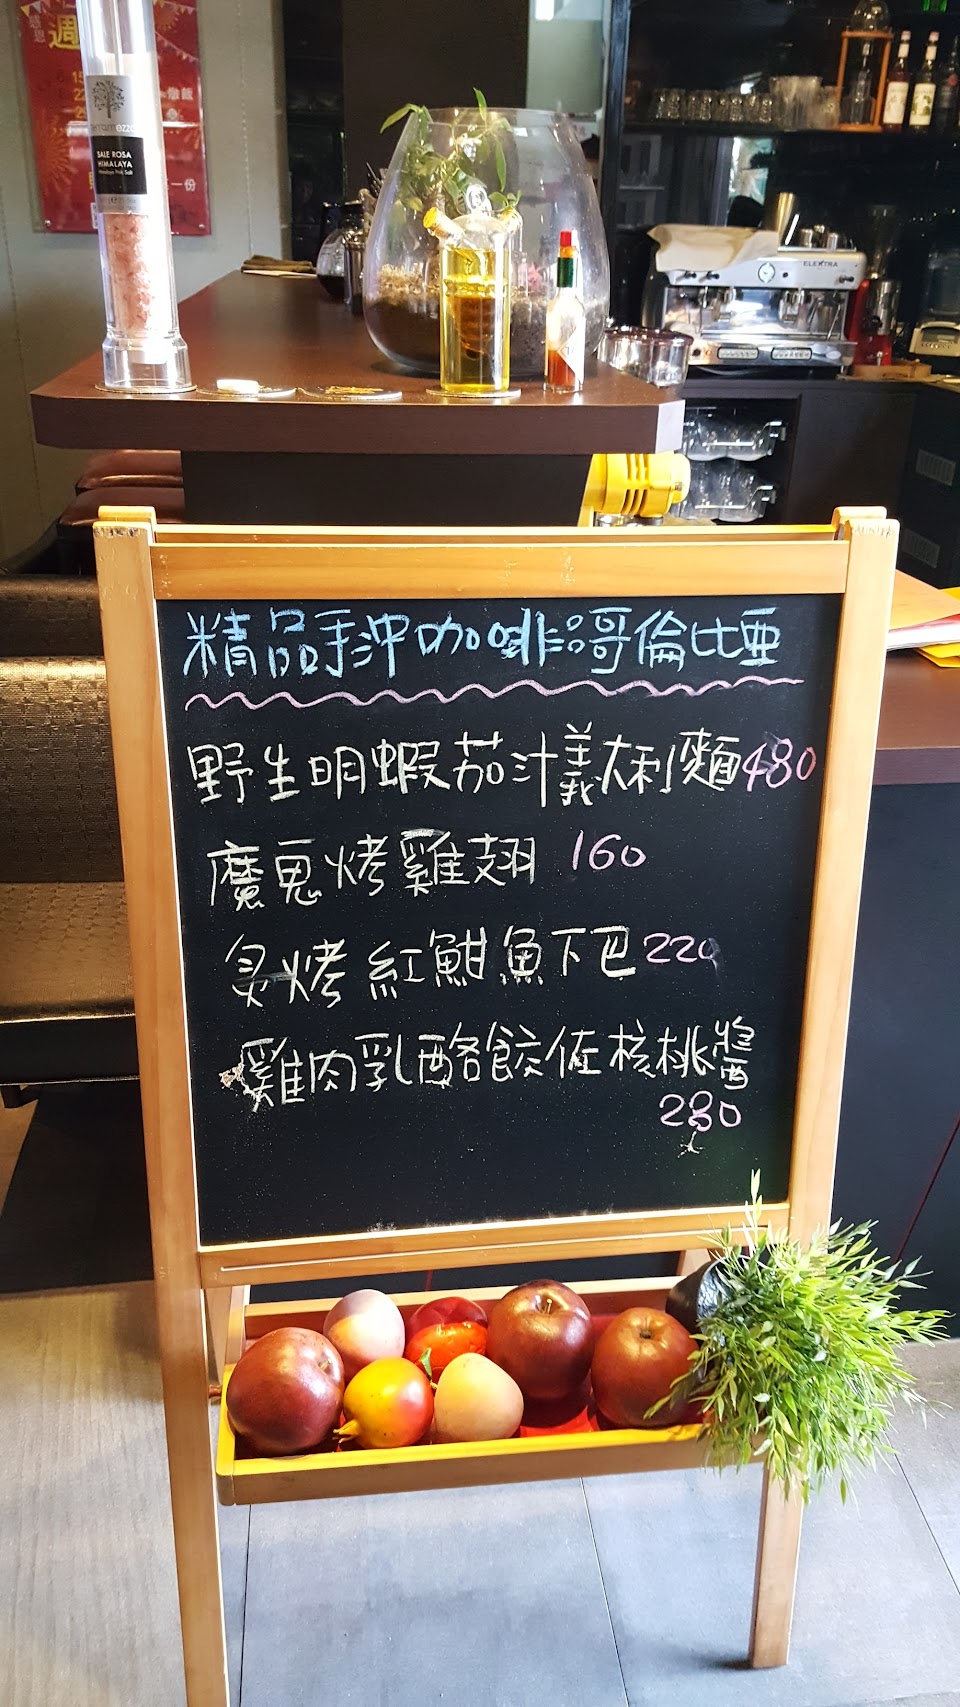 週
一份
SALE ROSA
HIMALAYA
Himalaya Pink Salt
ELEKTRA
精品手沖咖啡哥倫比亞
野生明蝦茄汁義大利麵480
魔鬼烤雞翅 160
炙烤紅魽魚下巴220
雞肉乳酪餃佐核桃醬
280